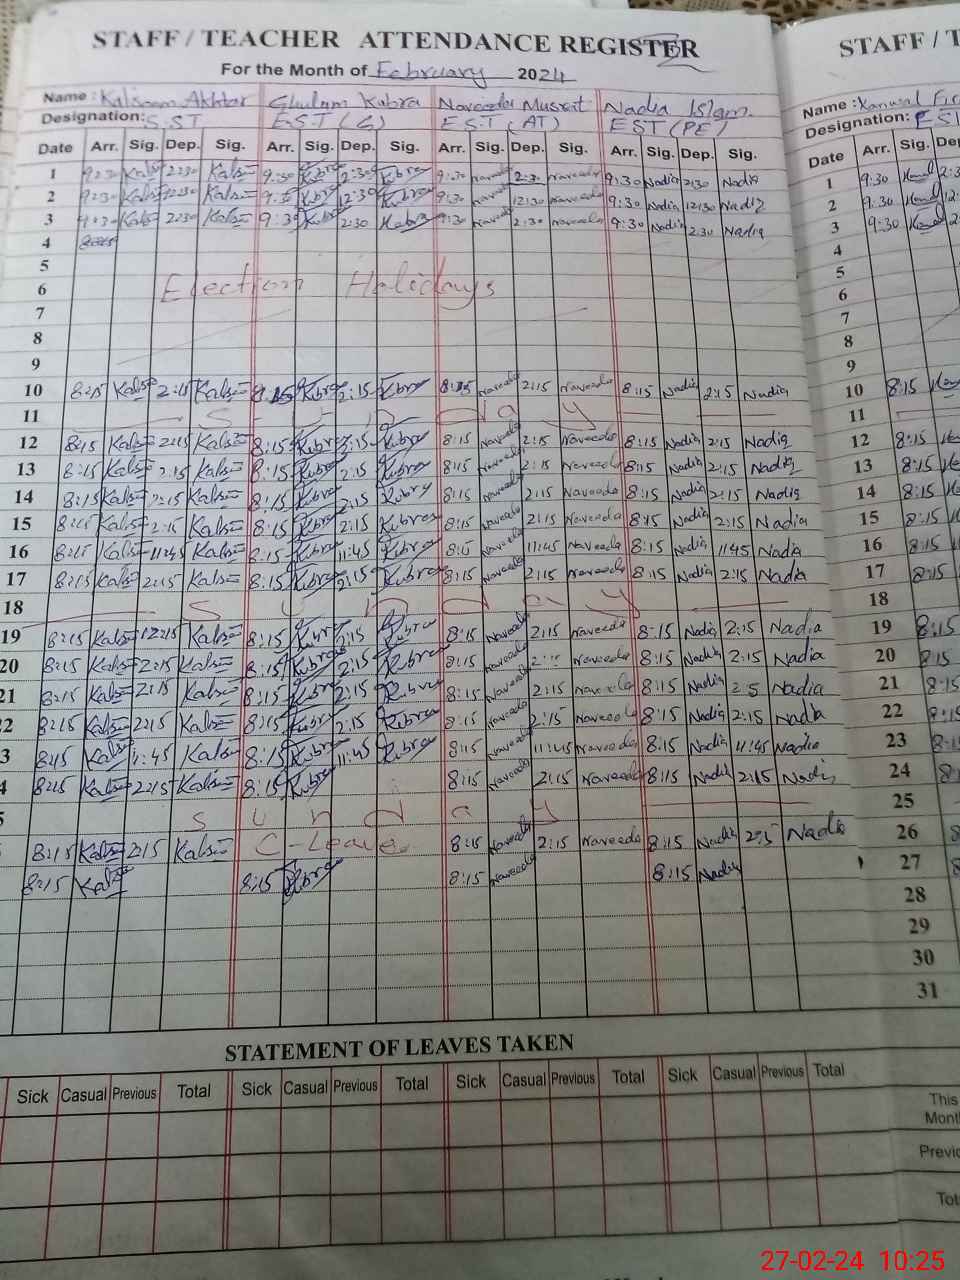 STAFF / TEACHER ATTENDANCE REGISTER
For the Month of February 2024
Name : Kalsoom Akhtar Ghulam Kubra Naveeda Musrat Nadia Islam
Designation: S.ST E.S.T (G) E.S.T (AT) EST (PE)
Date Arr. Sig. Dep. Sig. Arr. Sig. Dep. Sig. Arr. Sig. Dep. Sig. Arr. Sig. Dep. Sig.
1 9:30 Kals 2:30 Kals 9:30 Kubra 2:30 Kubra 9:30 Naveeda 2:30 Naveeda 9:30 Nadia 2:30 Nadia
2 9:30 Kals 12:30 Kals 9:30 Kubra 12:30 Kubra 9:30 Naveeda 12:30 Naveeda 9:30 Nadia 12:30 Nadia
3 9:30 Kals 2:30 Kals 9:30 Kubra 2:30 Kubra 9:30 Naveeda 2:30 Naveeda 9:30 Nadia 2:30 Nadia
4
5
6 Election Holidays
7
8
9
10 8:15 Kals 2:15 Kals 8:15 Kubra 2:15 Kubra 8:15 Naveeda 2:15 Naveeda 8:15 Nadia 2:15 Nadia
11 S u n d a y
12 8:15 Kals 2:15 Kals 8:15 Kubra 2:15 Kubra 8:15 Naveeda 2:15 Naveeda 8:15 Nadia 2:15 Nadia
13 8:15 Kals 2:15 Kals 8:15 Kubra 2:15 Kubra 8:15 Naveeda 2:15 Naveeda 8:15 Nadia 2:15 Nadia
14 8:15 Kals 2:15 Kals 8:15 Kubra 2:15 Kubra 8:15 Naveeda 2:15 Naveeda 8:15 Nadia 2:15 Nadia
15 8:15 Kals 2:15 Kals 8:15 Kubra 2:15 Kubra 8:15 Naveeda 2:15 Naveeda 8:15 Nadia 2:15 Nadia
16 8:15 Kals 11:45 Kals 8:15 Kubra 11:45 Kubra 8:15 Naveeda 11:45 Naveeda 8:15 Nadia 11:45 Nadia
17 8:15 Kals 2:15 Kals 8:15 Kubra 2:15 Kubra 8:15 Naveeda 2:15 Naveeda 8:15 Nadia 2:15 Nadia
18 S u n d a y
19 8:15 Kals 2:15 Kals 8:15 Kubra 2:15 Kubra 8:15 Naveeda 2:15 Naveeda 8:15 Nadia 2:15 Nadia
20 8:15 Kals 2:15 Kals 8:15 Kubra 2:15 Kubra 8:15 Naveeda 2:15 Naveeda 8:15 Nadia 2:15 Nadia
21 8:15 Kals 2:15 Kals 8:15 Kubra 2:15 Kubra 8:15 Naveeda 2:15 Naveeda 8:15 Nadia 2:5 Nadia
2 8:15 Kals 2:15 Kals 8:15 Kubra 2:15 Kubra 8:15 Naveeda 2:15 Naveeda 8:15 Nadia 2:15 Nadia
3 8:15 Kals 11:45 Kals 8:15 Kubra 11:45 Kubra 8:15 Naveeda 11:45 Naveeda 8:15 Nadia 11:45 Nadia
4 8:15 Kals 2:15 Kals 8:15 Kubra 8:15 Naveeda 2:15 Naveeda 8:15 Nadia 2:15 Nadia
S u n d a y
8:15 Kals 2:15 Kals C-Leave 8:15 Naveeda 2:15 Naveeda 8:15 Nadia 2:5 Nadia
8:15 Kals 8:15 Kubra 8:15 Naveeda 8:15 Nadia
STATEMENT OF LEAVES TAKEN
Sick Casual Previous Total Sick Casual Previous Total Sick Casual Previous Total Sick Casual Previous Total
STAFF / T
Name : Kanwal
Designation: EST
Date Arr. Sig. De
1 9:30
2 9:30
3 9:30
4
5
6
7
8
9
10 8:15
11
12 8:15
13 8:15
14 8:15
15 8:15
16 8:15
17 8:15
18
19 8:15
20 8:15
21 8:15
22 8:15
23
24
25
26
27
28
29
30
31
This
Mont
Previo
Tot
27-02-24 10:25